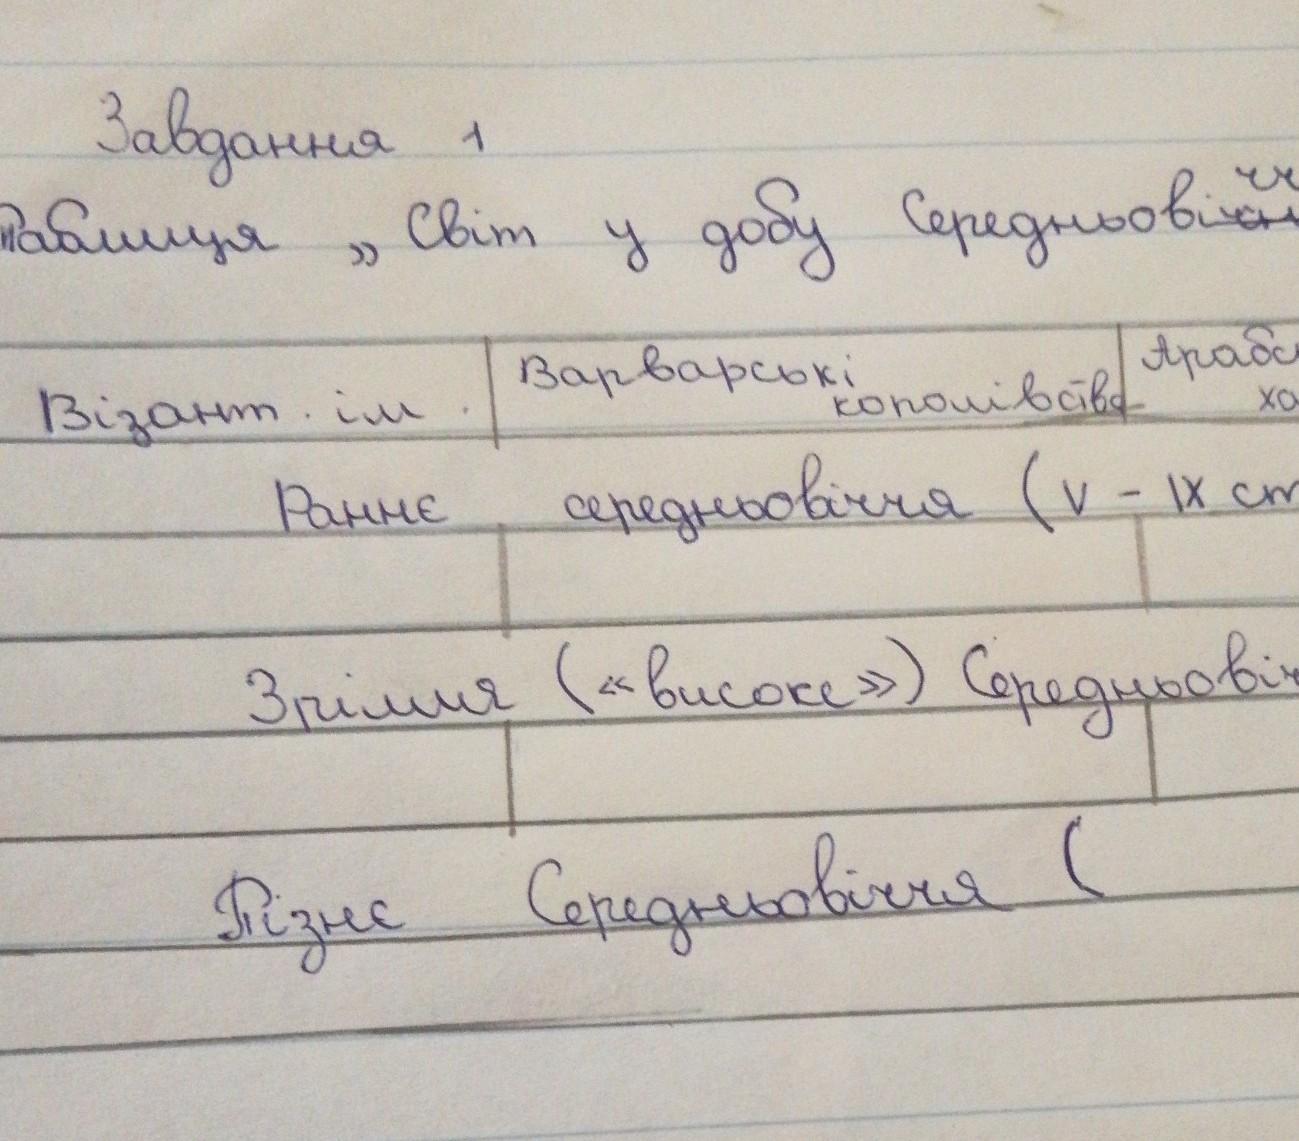 Завдання 1
Таблиця „ Світ у добу Середньовіч
Візант. ім. Варварські королівства Арабс
хо
Раннє середньовіччя ( V – IX ст
Зрілля («високе») Середньовіч
Пізнє Середньовіччя (